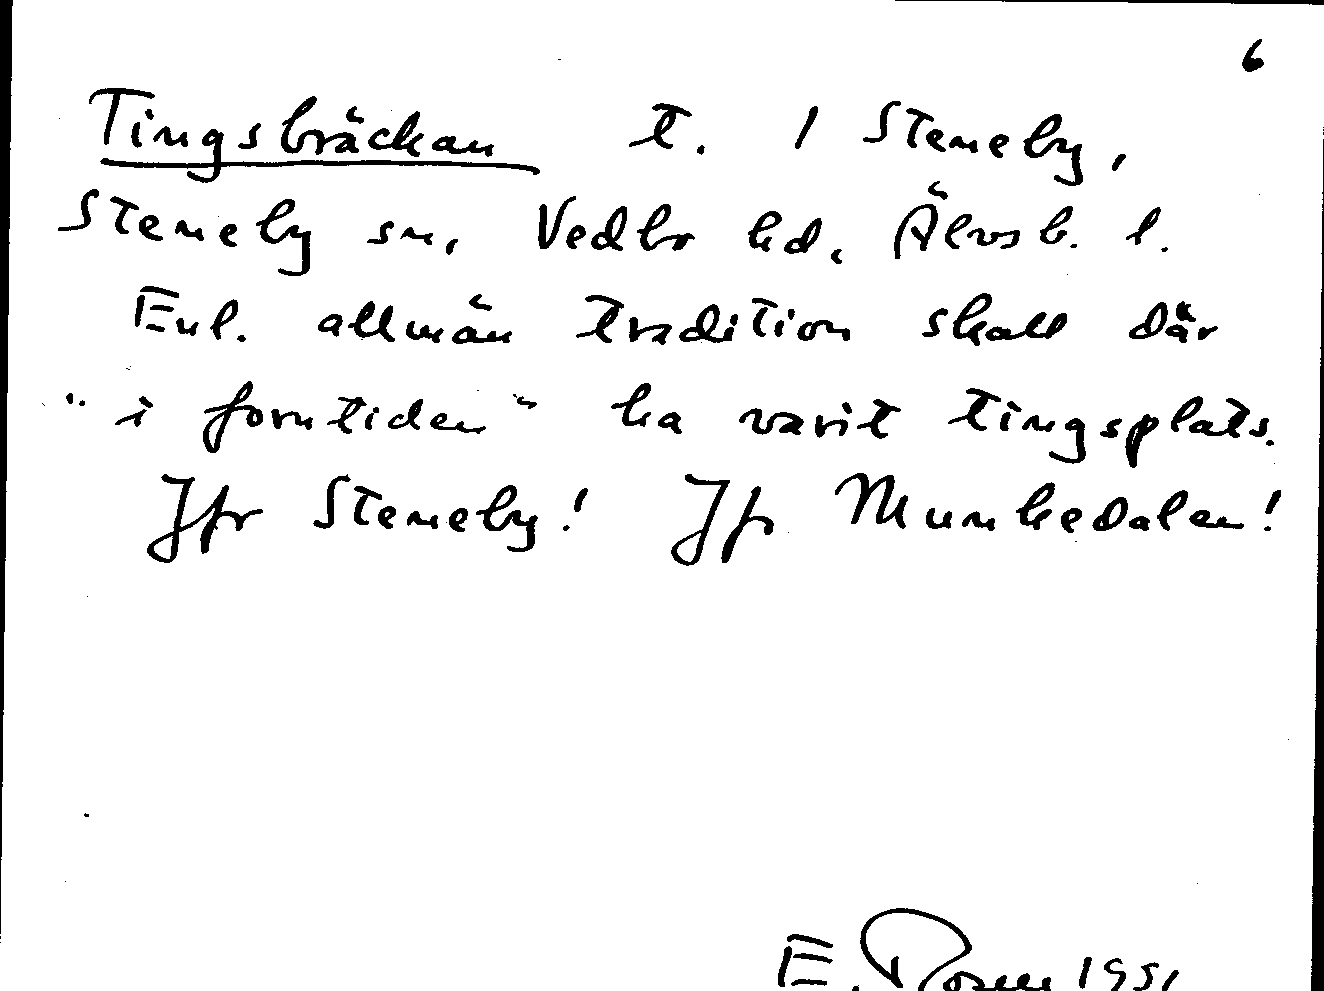 6
Tingsbräckan t. 1 Steneby,
Steneby sn, Vedbo hd. Älvsb. l.
Enl. allmän tradition skall där
"i forntiden" ha varit tingsplats.
Jfr Steneby! Jfr Munkedalen!
E. Rosen 1951